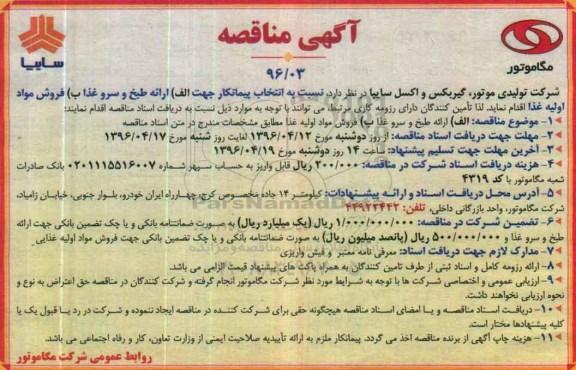 آگهی مناقصه
۹۶/۰۳
سایپا
مگاموتور
شرکت تولیدی موتور، گیربکس و اکسل سایپا در نظر دارد، نسبت به انتخاب پیمانکار جهت الف) ارائه طبخ و سرو غذا ب) فروش مواد
اولیه غذا اقدام نماید. لذا تأمین کنندگان دارای رزومه کاری مرتبط، می توانند با توجه به موارد ذیل نسبت به دریافت اسناد مناقصه اقدام نمایند:
۱- موضوع مناقصه: الف) ارائه طبخ و سرو غذا ب) فروش مواد اولیه غذا مطابق مشخصات مندرج در متن اسناد مناقصه
۲- مهلت جهت دریافت اسناد مناقصه: از روز دوشنبه مورخ ۱۳۹۶/۰۴/۱۲ لغایت روز شنبه مورخ ۱۳۹۶/۰۴/۱۷
۳- آخرین مهلت جهت تسلیم پیشنهاد: ساعت ۱۴ روز دوشنبه مورخ ۱۳۹۶/۰۴/۱۹
۴- هزینه دریافت اسناد شرکت در مناقصه: ۲۰۰/۰۰۰ ریال قابل واریز به حساب سپهر شماره ۰۲۰۱۱۱۵۵۱۶۰۰۷ بانک صادرات
شعبه مگاموتور با کد ۴۳۱۹
۵- آدرس محل دریافت اسناد و ارائه پیشنهادات: کیلومتر ۱۴ جاده مخصوص کرج، چهارراه ایران خودرو، بلوار جنوبی، خیابان زامیاد،
شرکت مگاموتور، واحد بازرگانی داخلی، تلفن: ۴۴۹۲۳۴۴۲
۶- تضمین شرکت در مناقصه: ۱/۰۰۰/۰۰۰/۰۰۰ ریال (یک میلیارد ریال) به صورت ضمانتنامه بانکی و یا چک تضمین بانکی جهت ارائه
طبخ و سرو غذا و ۵۰۰/۰۰۰/۰۰۰ ریال (پانصد میلیون ریال) به صورت ضمانتنامه بانکی و یا چک تضمین بانکی جهت فروش مواد اولیه غذایی
۷- مدارک لازم جهت دریافت اسناد: معرفی نامه معتبر و فیش واریزی
۸- ارائه رزومه کامل و اسناد ثبتی از طرف تامین کنندگان به همراه پاکت های پیشنهاد قیمت الزامی می باشد.
۹- ارزیابی عمومی و اختصاصی شرکت ها با توجه به شرایط مورد نظر شرکت مگاموتور انجام گرفته و شرکت کنندگان در مناقصه حق اعتراض به نوع و
نحوه ارزیابی نخواهند داشت.
۱۰- دریافت اسناد مناقصه و یا امضای اسناد مناقصه هیچگونه حقی برای شرکت کننده در مناقصه ایجاد ننموده و شرکت در رد یا قبول یک یا
کلیه پیشنهادها مختار است.
۱۱- هزینه چاپ آگهی از برنده مناقصه اخذ می گردد. پیمانکار ملزم به ارائه تأییدیه صلاحیت ایمنی از وزارت تعاون، کار و رفاه اجتماعی می باشد.
روابط عمومی شرکت مگاموتور